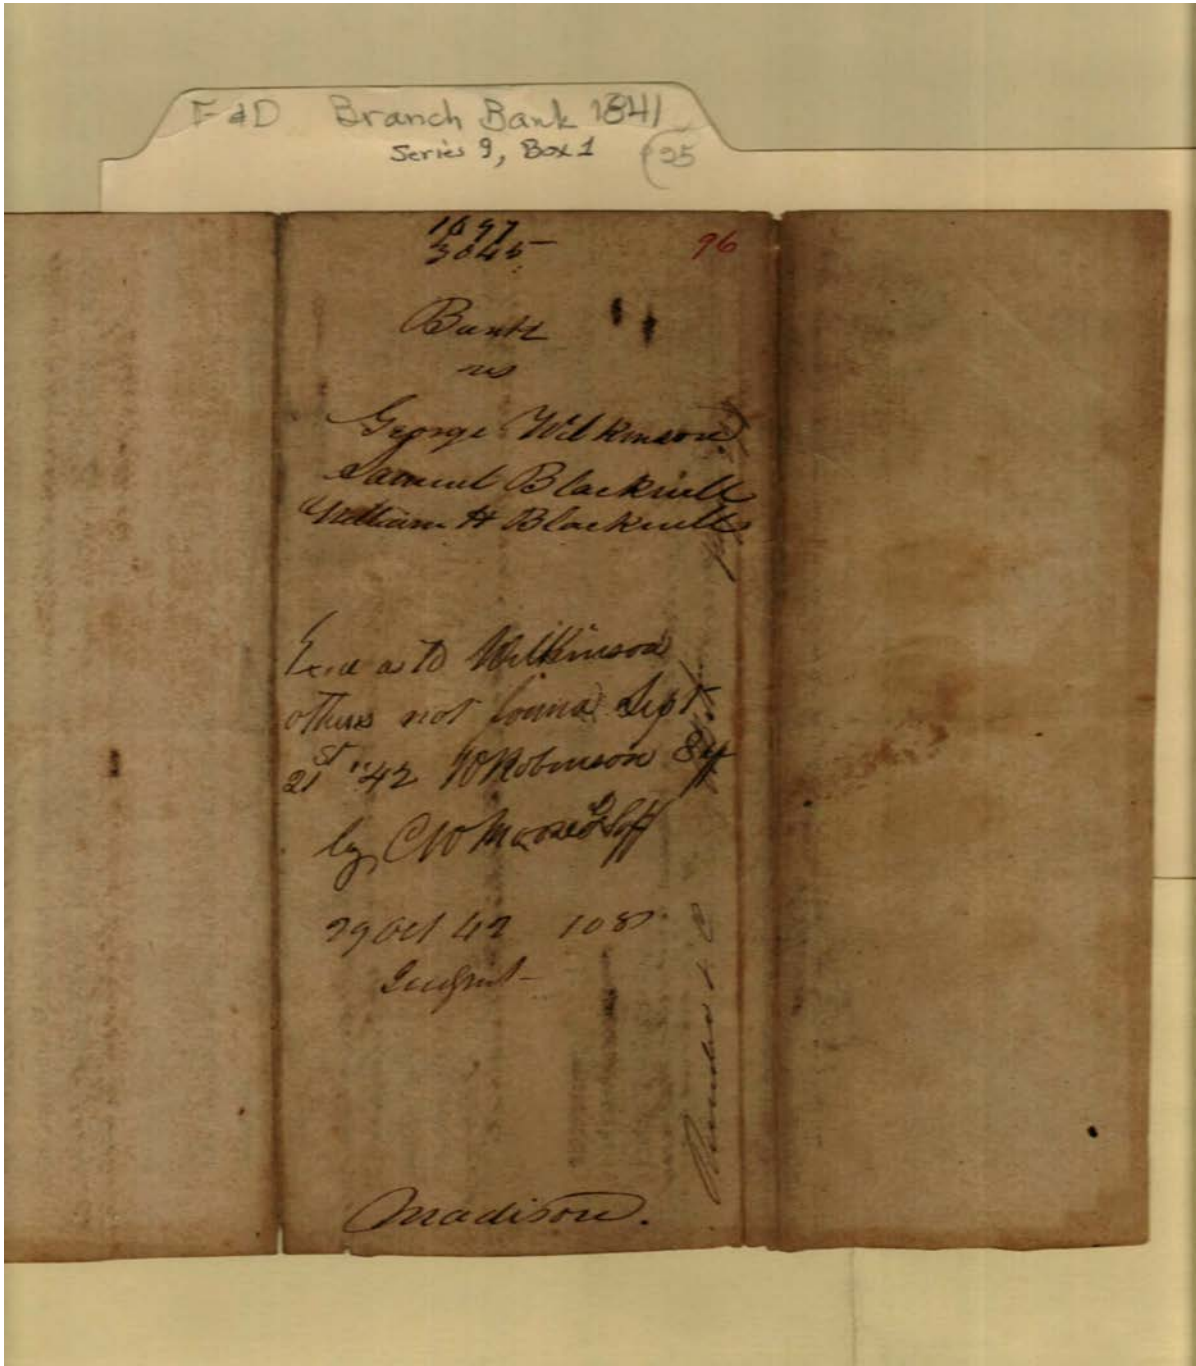 F & D Branch Bank 1841
Series 9, Box 1 (25
1697
3045
96
Bank
vs
George Wilkinson
Samuel Blackwell
William H Blackwell
Exed as to Wilkinson
others not found Sept
21st "42 W Robinson Shff
by C W Moore D Shff
29 Oct 42 108
Judgmt
Madison.